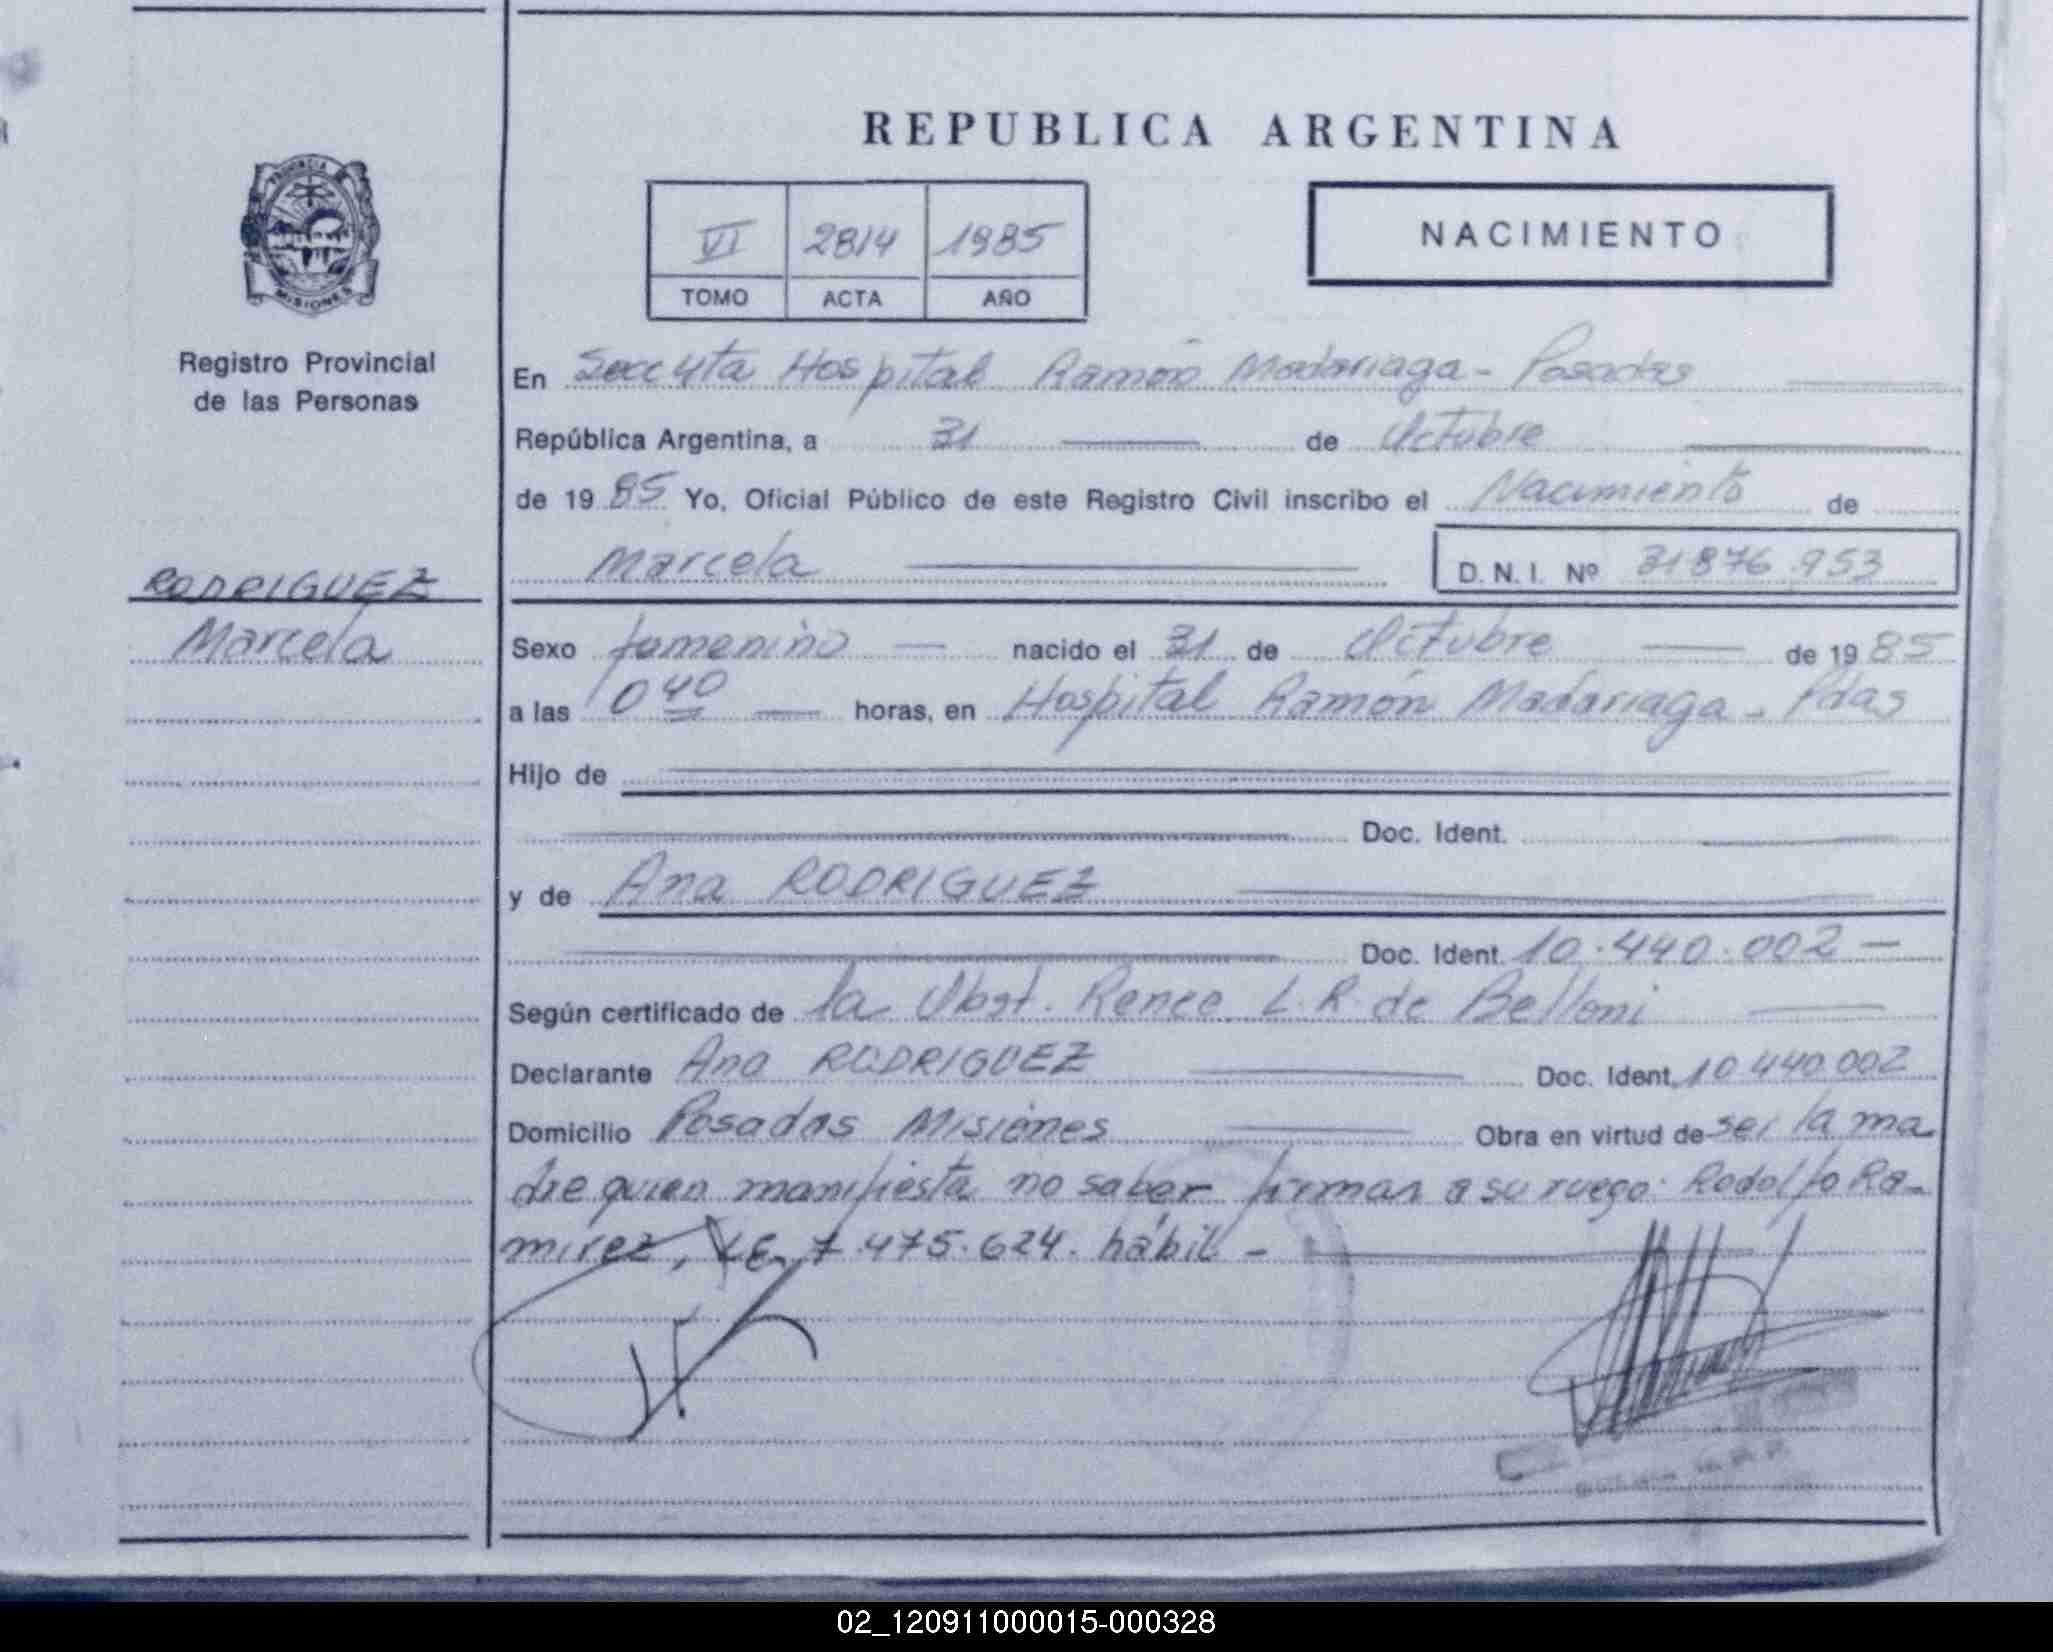 PROVINCIA
MISIONES
Registro Provincial
de las Personas
RODRIGUEZ
Marcela
REPUBLICA ARGENTINA
VI 2814 1985
TOMO ACTA AÑO
NACIMIENTO
En Secc 4ta Hospital Ramón Madariaga - Posadas
República Argentina, a 31 de Octubre
de 1985 Yo, Oficial Público de este Registro Civil inscribo el Nacimiento de
Marcela D. N. I. Nº 31876.953
Sexo femenino nacido el 31 de Octubre de 1985
a las 0 40 horas, en Hospital Ramón Madariaga - Pdas
Hijo de
Doc. Ident.
y de Ana RODRIGUEZ
Doc. Ident. 10.440.002 -
Según certificado de la Obst. Renee L. R. de Belloni
Declarante Ana RODRIGUEZ Doc. Ident. 10.440.002
Domicilio Posadas Misiones Obra en virtud de ser la ma
dre quien manifiesta no saber firmar a su ruego: Rodolfo Ra-
mirez, LE. 7.475.624. hábil -
02_120911000015-000328